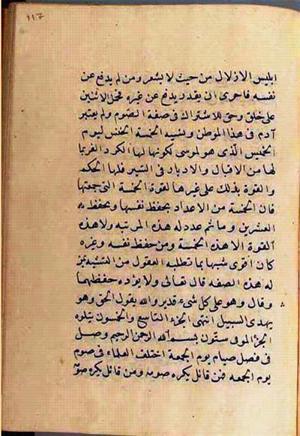 ١١٧
ابليس الاذلال من حيث لا يشعر ومن لم يدفع عن
نفسه فاحرى ان يقدر يدفع عن غيره فخص الاثنين
على خلق وحى للاشتراك فى صفة الصوم ولم يعتبر
آدم فى هذا الموطن وتشبه الخمسة الخنس ليوم
الخميس الذى هو لموسى لكونها لها الكرة الفريما
لها من الاقبال والادبار فى السير فلها الحكم
والقوة بذلك على غيرها لقوة الخمسة التى جمعتها
فان الخمسة من الاعداد يحفظ نفسها ويحفظ
العشرين وما ثم عدد له هذه المرتبه ولا هذه
القوة الا هذه الخمسة ومن حفظ نفسه وغيره
كان اقوى شبها بما تطلبه العقول من التشبيه بمن
له هذه الصفه قال تعالى ولا يؤده حفظهما
وقال وهو على كل شىء قدير والله يقول الحق وهو
يهدى السبيل انتهى الجزء التاسع والخمسون يتلوه
الجزء الموفى ستون بسم الله الرحمن الرحيم وصل
فى فصل صيام يوم الجمعة اختلف العلماء فى صوم
يوم الجمعه فمن قائل يكره صومه ومن قائل يكره صو